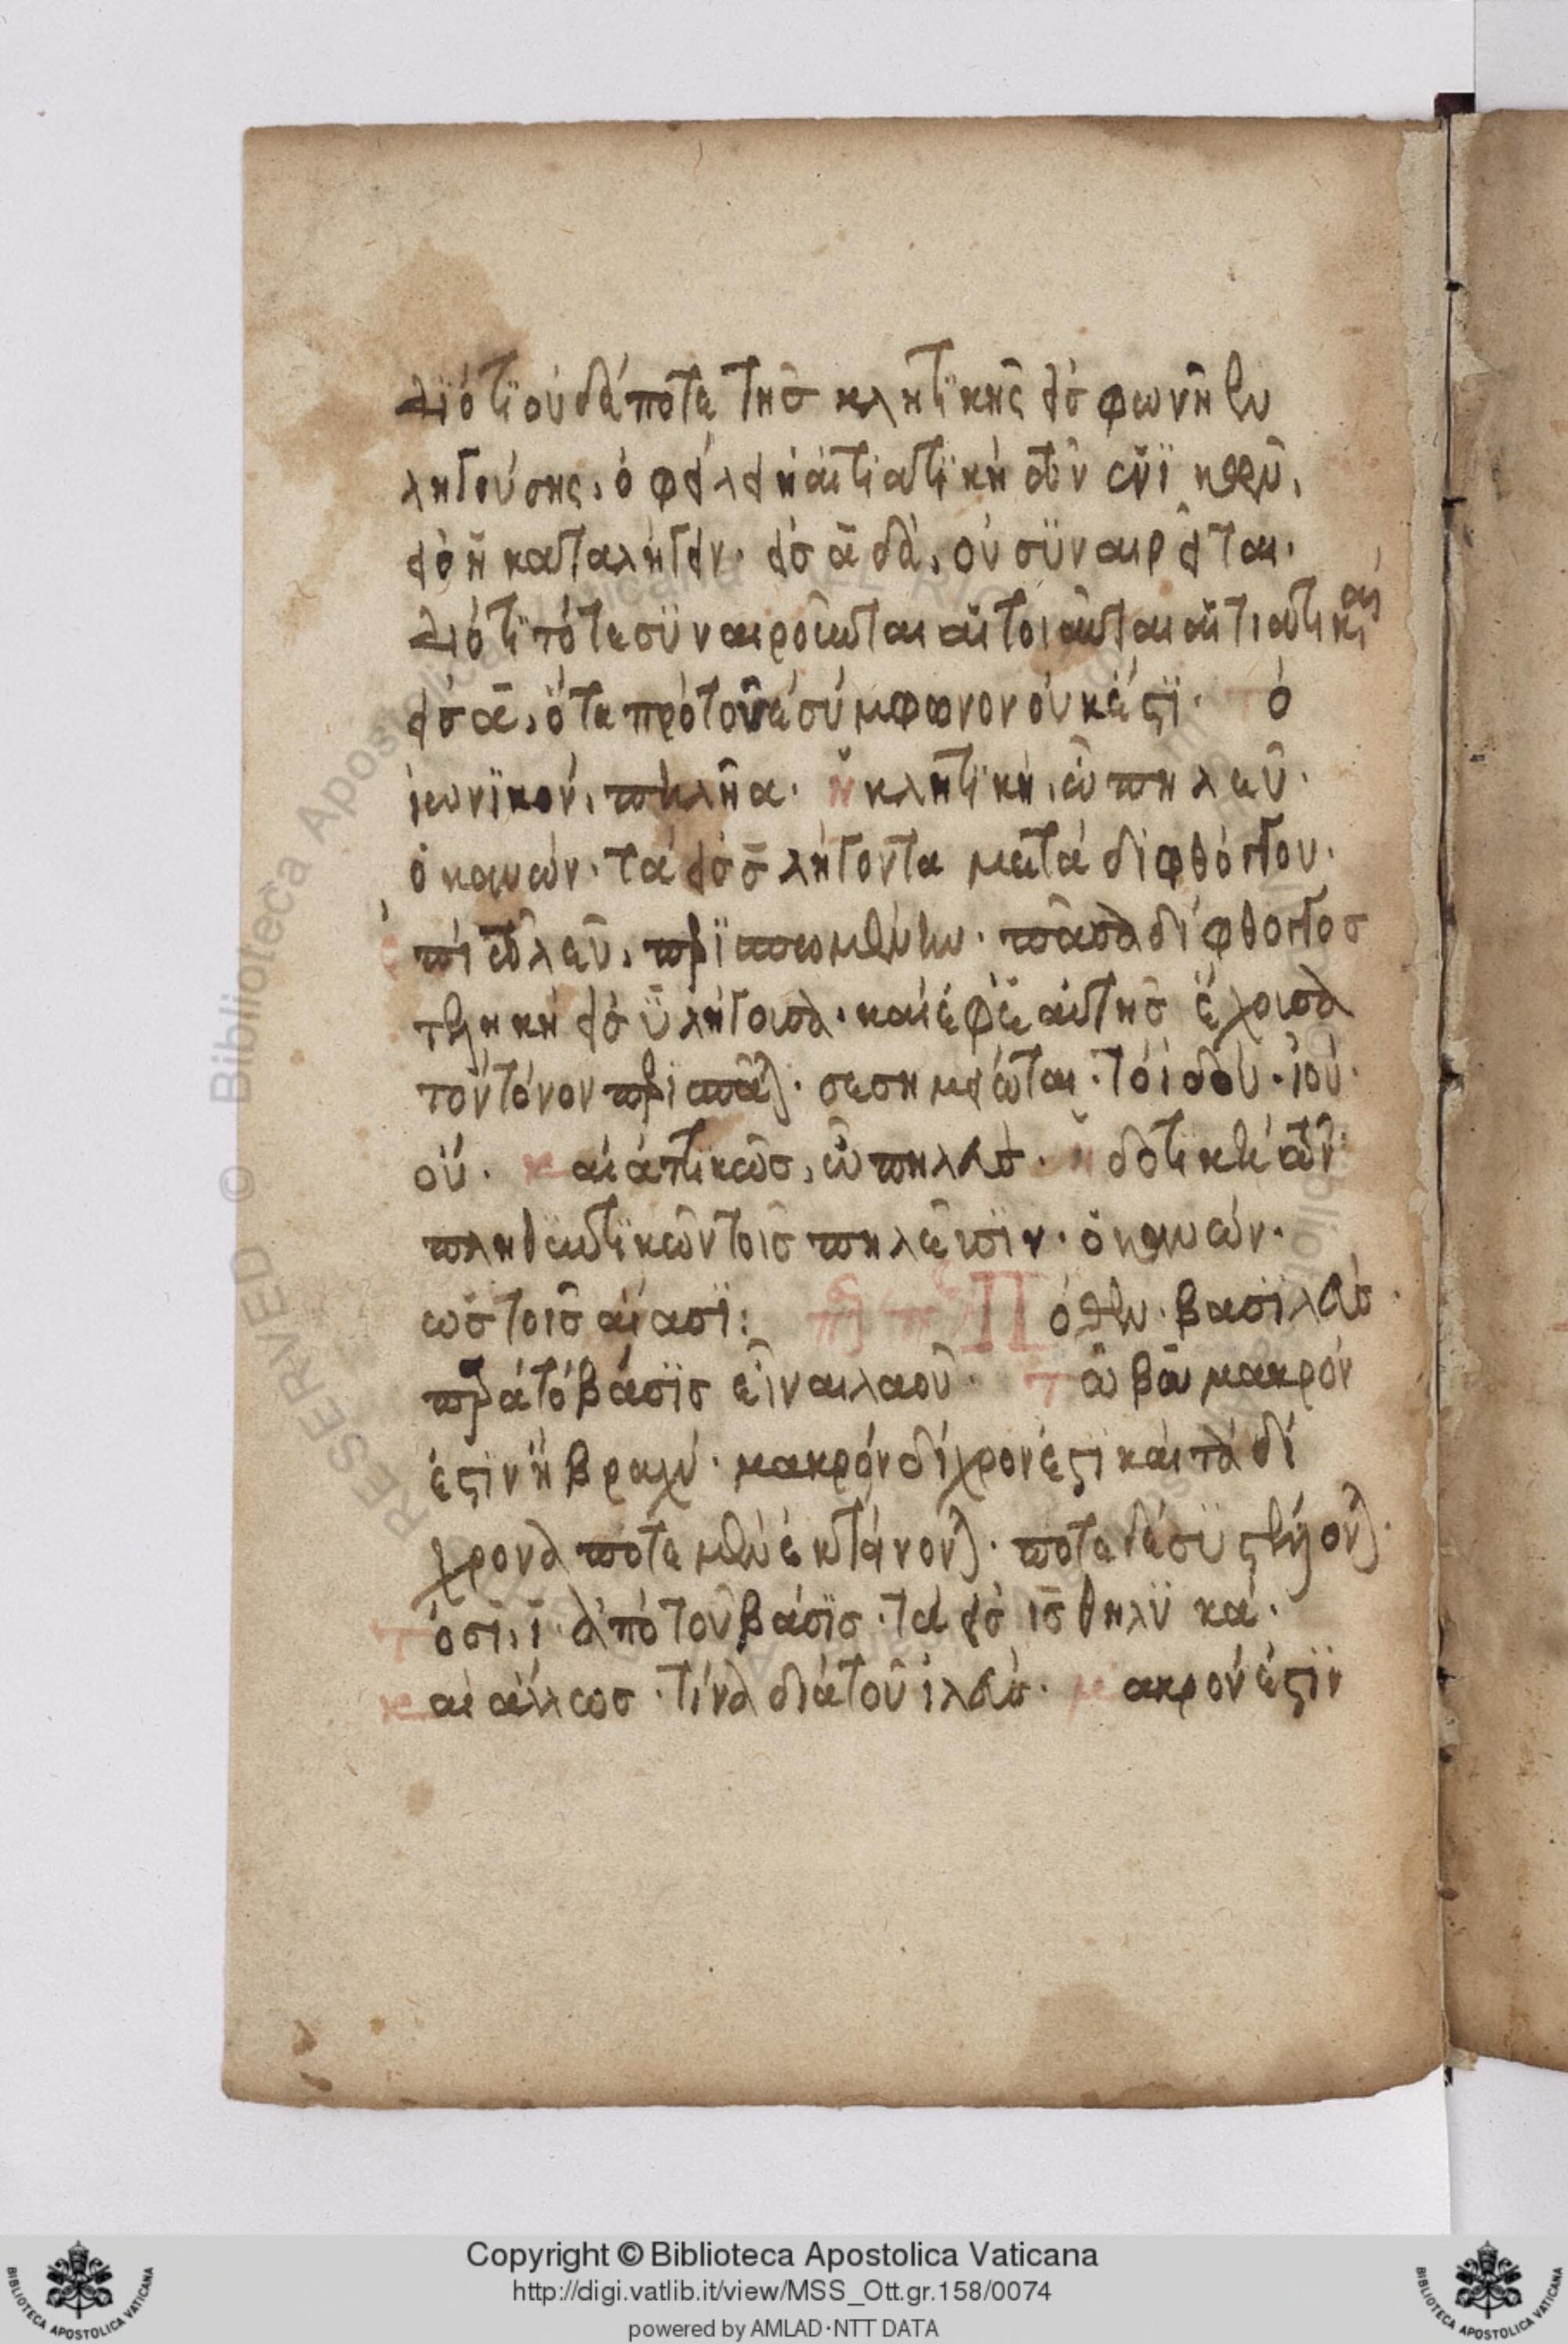 διότι οὐδέποτε τῆς κλητικῆς εἰς φωνῆεν
ληγούσης, ὀφείλει ἡ αἰτιατικὴ τῶν ἑνικῶν,
εἰς ν καταλήγειν. εἰς α δὲ, οὐ συναιρεῖται.
διότι τότε συναιροῦνται αἱ τοιαῦται αἰτιατικαὶ
εἰς α, ὅτε πρὸ τοῦ ε σύμφωνον οὐκ ἔστι. τὸ
ἰωνικὸν, πηλῆα. ἡ κλητικὴ, ὦ πηλεῦ.
ὁ κανών. τὰ εἰς ς λήγοντα μετὰ διφθόγγου.
ἐπὶ τὸ λεῦ, περισπωμένην. πᾶσα δίφθογγος
εἰς υ λήγουσα. καὶ ἐφ' ἑαυτῆς ἔχουσα
τὸν τόνον περισπᾶται. σεσημείωται. τὸ ἰδού. ἰού.
οὐ. καὶ ἀττικῶς, ὦ πηλεύς. ἡ δοτικὴ τῶν
πληθυντικῶν τοῖς πηλεῦσιν. ὁ κανών.
ὡς τοῖς αἴασι: Πόθεν. βασιλεύς
παρὰ τὸ βάσις εἶναι λαοῦ. τὸ βα μακρόν
ἐστιν ἢ βραχύ. μακρόν δίχρονέστι καὶ τὰ δί
χρονα ποτὲ μὲν ἐκτείνονται. ποτὲ δὲ συστέλλονται.
τὸ σι, ι. ἀπὸ τοῦ βάσις. τὰ εἰς ις θηλυκά.
καὶ ἄλλως. τίνα διὰ τοῦ ιλεύς. μακρόν ἐστιν
Copyright © Biblioteca Apostolica Vaticana
http://digi.vatlib.it/view/MSS_Ott.gr.158/0074
powered by AMLAD·NTT DATA